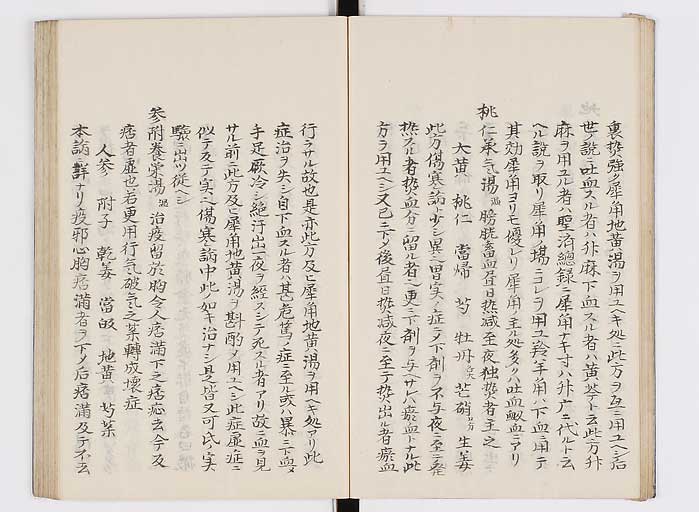 裏熱強ク犀角地黄湯ヲ用ユヘキ処ニ此方ヲ互ニ用ユヘシ后
世ノ説ニ吐血スル者ハ升麻下血スル者ハ黄芩ト云此方升
麻ヲ用ユル者ハ聖済總録ニ犀角ナキ寸ハ升麻ニ代ルト云
ヘル説ヲ取リ犀角ノ場ニコレヲ用ユ羚羊角ハ下血ニ用テ
其効犀角ヨリモ優レリ犀角ノ主ル処多クハ吐血衂血ニアリ
桃仁承気湯 膀胱畜血昼日熱減至夜独熱者主之
大黄 桃仁 當帰 芍 牡丹 芒硝 生姜
此方傷寒論ト少シ異也実ノ症ニメ下剤ヲ不与夜ニ至テ発
熱スル者熱血分ニ留ル者也更ニ下剤ヲ与ヘサレハ瘀血トナル此
方ヲ用ユヘシ又已ニ下メ後昼日熱減夜ニ至テ熱出ル者瘀血
行ラサル故也是亦此方及ヒ犀角地黄湯ヲ用ヘキ処アリ此
症治ヲ失シ自下血スル者ハ甚危篤ノ症ニ至ル或ハ暴ニ下血メ
手足厥冷シ絶汗出一夜ヲ経スシテ死スル者アリ故ニ血ヲ見
サル前ニ此方及ヒ犀角地黄湯ヲ斟酌メ用ユヘシ此症虚症ニ
似テ及テ実也傷寒論中此ノ如キ治ナシ是皆又可氏ノ実
驗ニ出ツ従ヘシ
参附養栄湯 治疫留於胸令人痞満下之痞応去今反
痞者虚也若更用行気破気之薬轉成壊症
人参 附子 乾姜 當歸 地黄 芍薬
本論ニ詳ナリ疫邪心胸痞満者ヲ下メ后痞満反テ不去